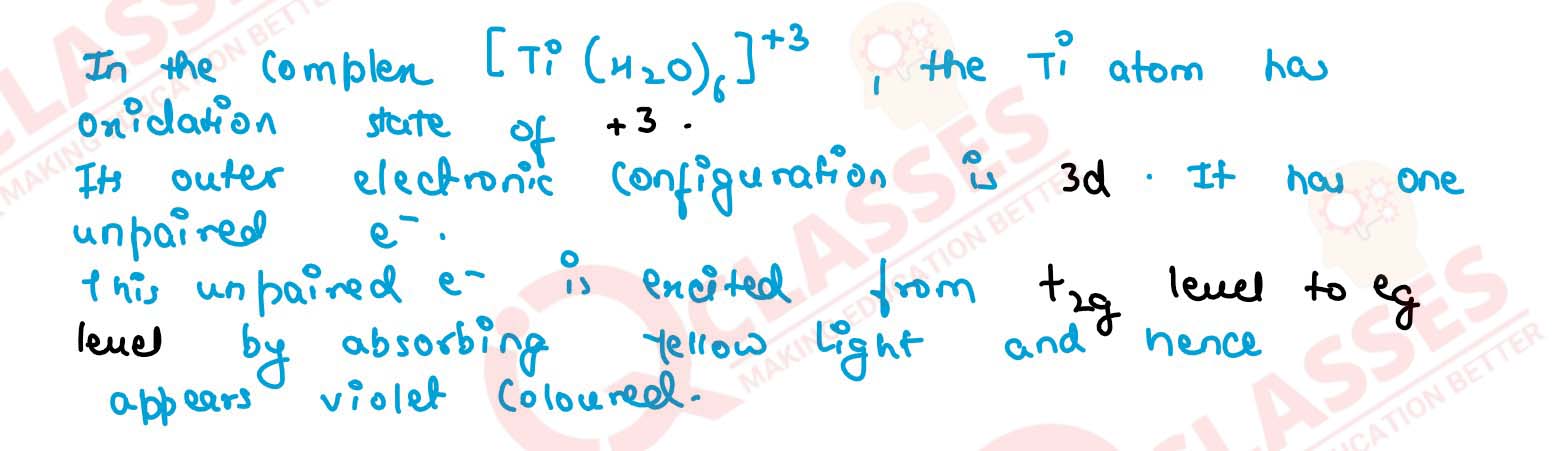 In the complex [Ti(H2O)6]+3, the Ti atom has
oxidation state of +3.
Its outer electronic configuration is 3d. It has one
unpaired e-.
this unpaired e- is excited from t2g level to eg
level by absorbing yellow light and hence
appears violet coloured.
CLASSES
MAKING EDUCATION BETTER
CLASSES
MAKING EDUCATION BETTER
CLASSES